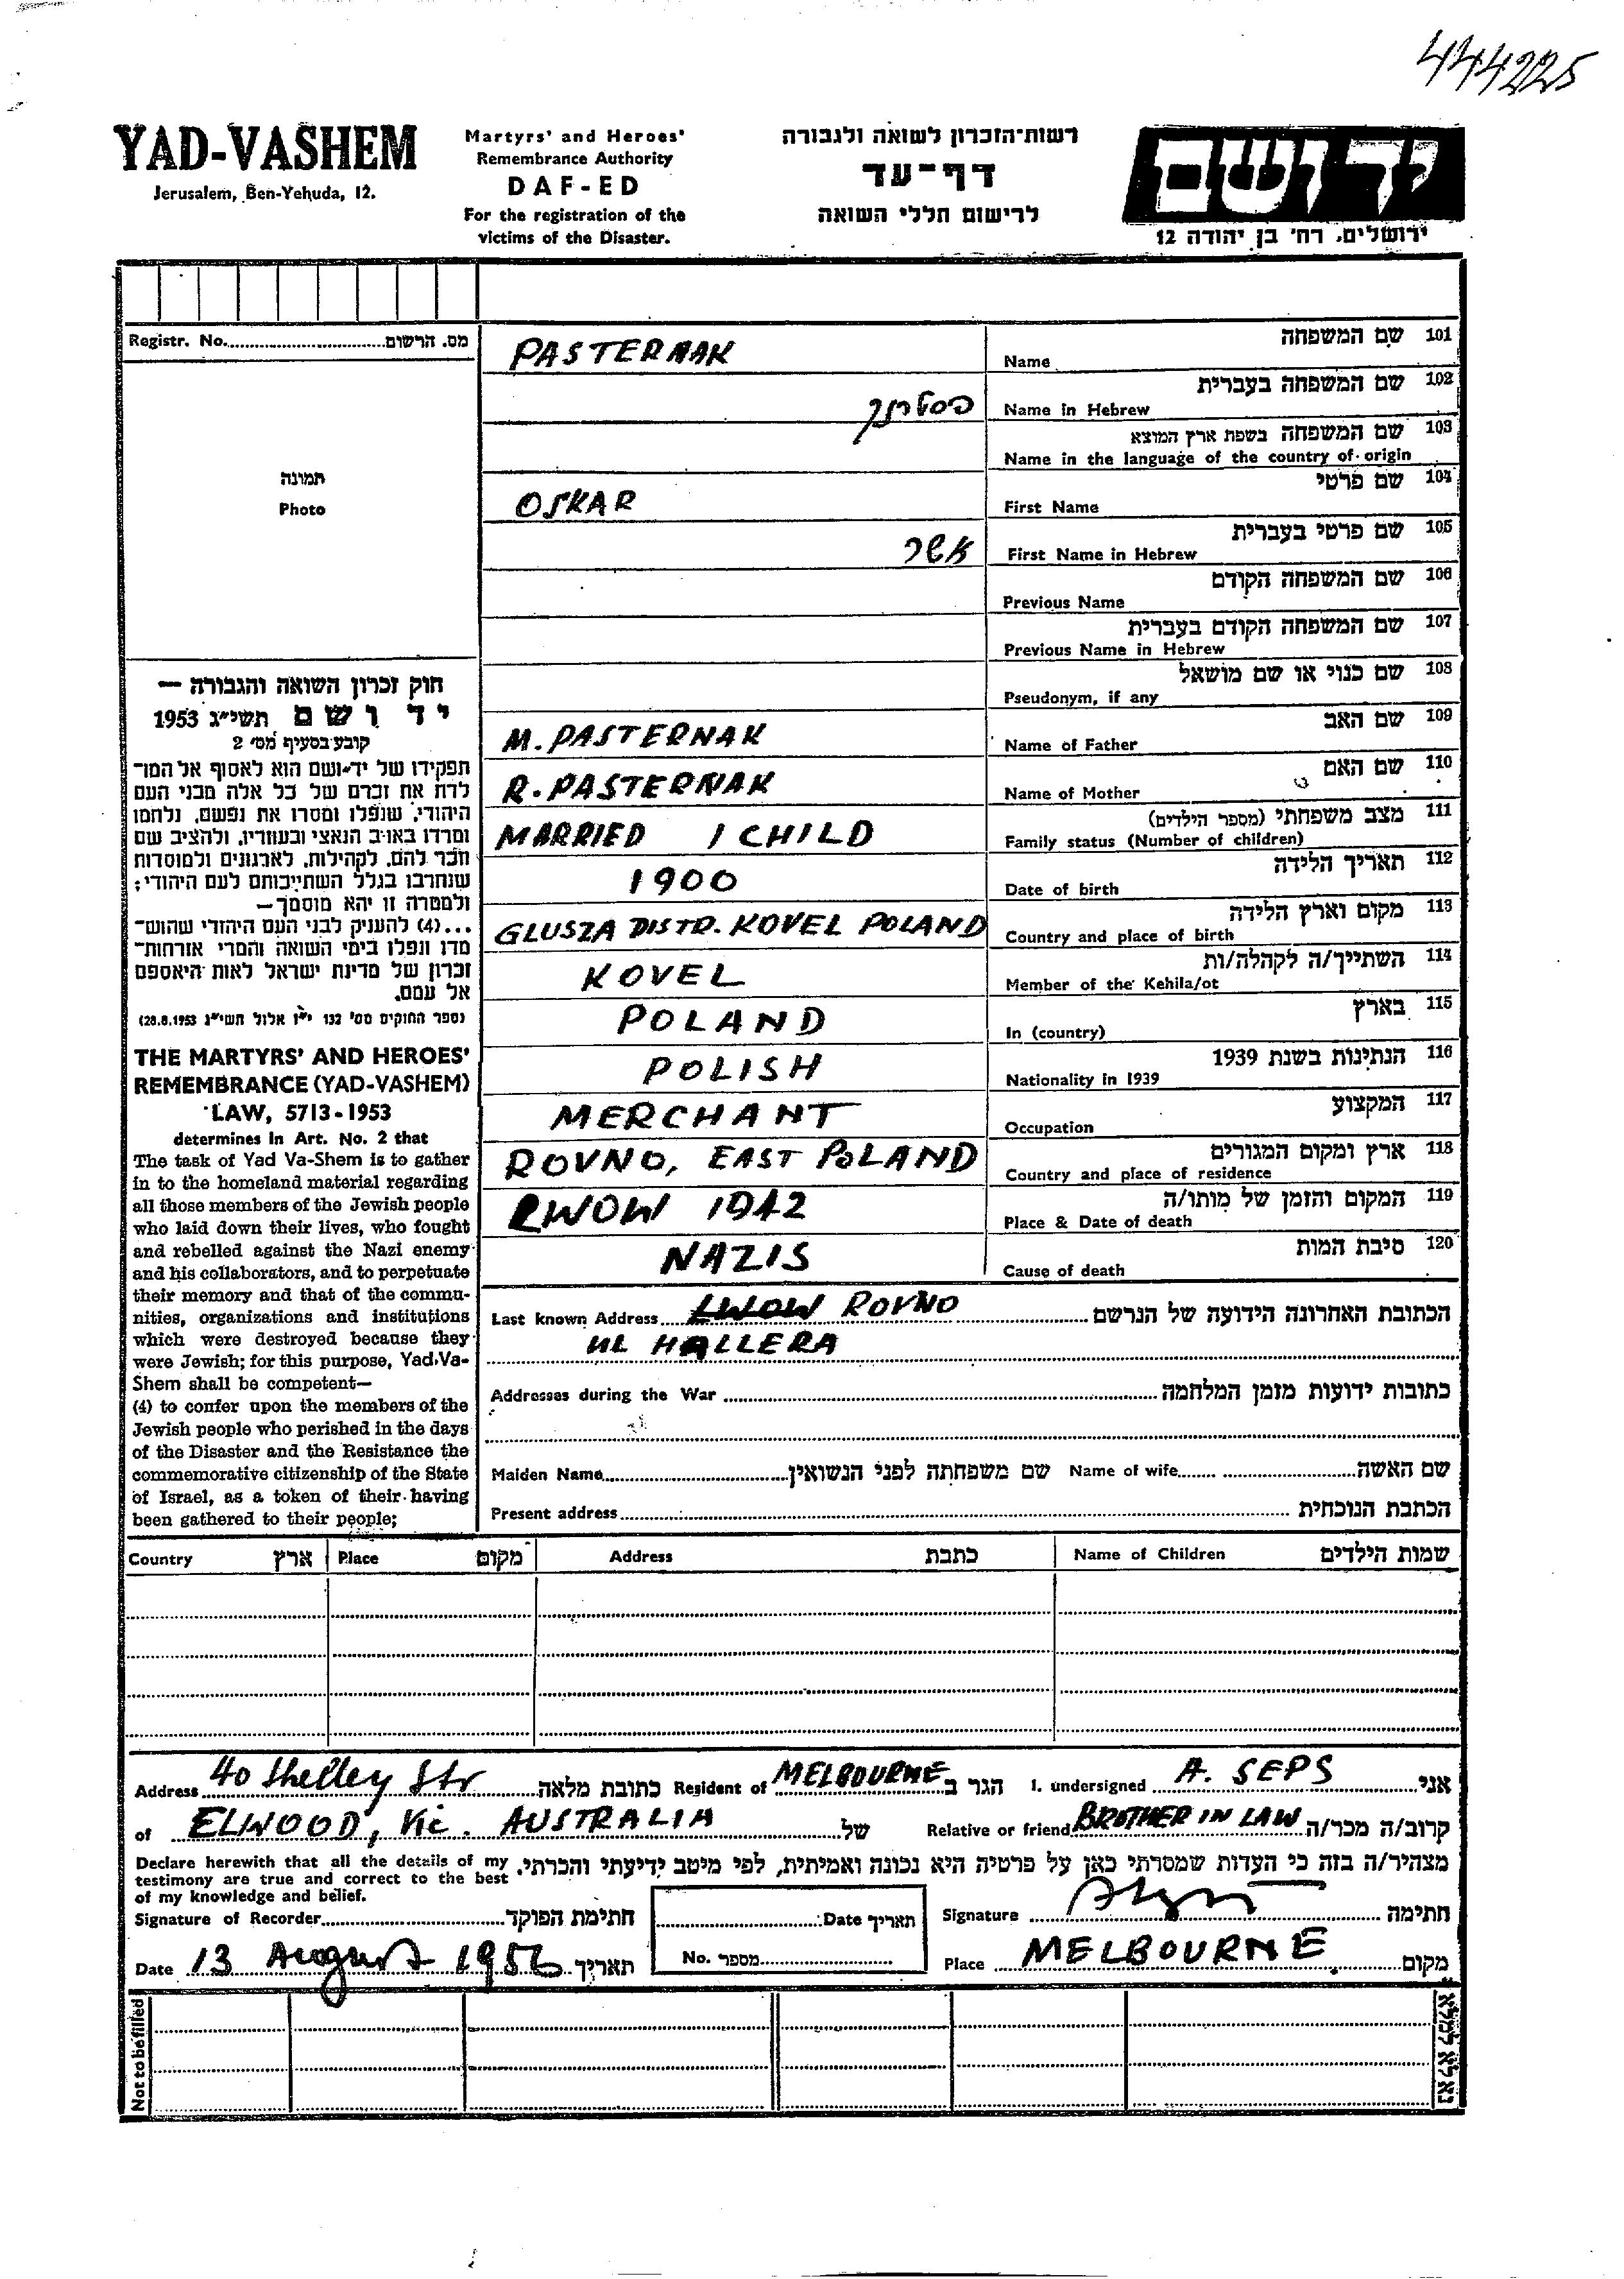 444225
YAD-VASHEM
Jerusalem, Ben-Yehuda, 12.
Martyrs' and Heroes'
Remembrance Authority
DAF-ED
For the registration of the
victims of the Disaster.
רשות־הזכרון לשואה ולגבורה
דף־עד
לרישום חללי השואה
יד ושם
ירושלים, רח' בן יהודה 12
Registr. No. מס. הרשום
תמונה
Photo
101 שם המשפחה
Name PASTERNAK
102 שם המשפחה בעברית
Name in Hebrew פסטרנק
103 שם המשפחה בשפת ארץ המוצא
Name in the language of the country of origin
104 שם פרטי
First Name OSKAR
105 שם פרטי בעברית
First Name in Hebrew אשר
106 שם המשפחה הקודם
Previous Name
107 שם המשפחה הקודם בעברית
Previous Name in Hebrew
108 שם כנוי או שם מושאל
Pseudonym, if any
109 שם האב
Name of Father M. PASTERNAK
110 שם האם
Name of Mother R. PASTERNAK
111 מצב משפחתי (מספר הילדים)
Family status (Number of children) MARRIED 1 CHILD
112 תאריך הלידה
Date of birth 1900
113 מקום וארץ הלידה
Country and place of birth GLUSZA DISTR. KOVEL POLAND
114 השתייך/ה לקהלה/ות
Member of the Kehila/ot KOVEL
115 בארץ
In (country) POLAND
116 הנתינות בשנת 1939
Nationality in 1939 POLISH
117 המקצוע
Occupation MERCHANT
118 ארץ ומקום המגורים
Country and place of residence ROVNO, EAST POLAND
119 המקום והזמן של מותו/ה
Place & Date of death LWOW 1942
120 סיבת המות
Cause of death NAZIS
חוק זכרון השואה והגבורה —
יד ושם תשי"ג 1953
קובע בסעיף מס' 2
תפקידו של יד־ושם הוא לאסוף אל המו־
לדת את זכרם של כל אלה מבני העם
היהודי, שנפלו ומסרו את נפשם, נלחמו
ומרדו באויב הנאצי ובעוזריו, ולהציב שם
וזכר להם, לקהילות, לארגונים ולמוסדות
שנחרבו בגלל השתייכותם לעם היהודי;
ולמטרה זו יהא מוסמך—
...(4) להעניק לבני העם היהודי שהוש־
מדו ונפלו בימי השואה והמרי אזרחות־
זכרון של מדינת ישראל לאות היאספם
אל עמם.
(ספר החוקים מס' 132 י"ז אלול תשי"ג 28.8.1953)
THE MARTYRS' AND HEROES'
REMEMBRANCE (YAD-VASHEM)
LAW, 5713-1953
determines in Art. No. 2 that
The task of Yad Va-Shem is to gather
in to the homeland material regarding
all those members of the Jewish people
who laid down their lives, who fought
and rebelled against the Nazi enemy
and his collaborators, and to perpetuate
their memory and that of the commu-
nities, organizations and institutions
which were destroyed because they
were Jewish; for this purpose, Yad-Va-
Shem shall be competent—
(4) to confer upon the members of the
Jewish people who perished in the days
of the Disaster and the Resistance the
commemorative citizenship of the State
of Israel, as a token of their having
been gathered to their people;
Last known Address LWOW ROVNO הכתובת האחרונה הידועה של הנרשם
UL HALLERA
Addresses during the War כתובות ידועות מזמן המלחמה
Maiden Name שם משפחתה לפני הנשואין Name of wife שם האשה
Present address הכתבת הנוכחית
Country ארץ Place מקום Address כתבת Name of Children שמות הילדים
Address 40 Shelley Str כתובת מלאה Resident of MELBOURNE הגר ב I. undersigned A. SEPS אני
of ELWOOD, Vic. AUSTRALIA של Relative or friend BROTHER IN LAW קרוב/ה מכר/ה
Declare herewith that all the details of my
testimony are true and correct to the best
of my knowledge and belief.
מצהיר/ה בזה כי העדות שמסרתי כאן על פרטיה היא נכונה ואמיתית, לפי מיטב ידיעתי והכרתי.
Signature of Recorder חתימת הפוקד Date תאריך Signature חתימה
Date 13 August 1956 תאריך No. מספר Place MELBOURNE מקום
Not to be filled
נא לא למלא